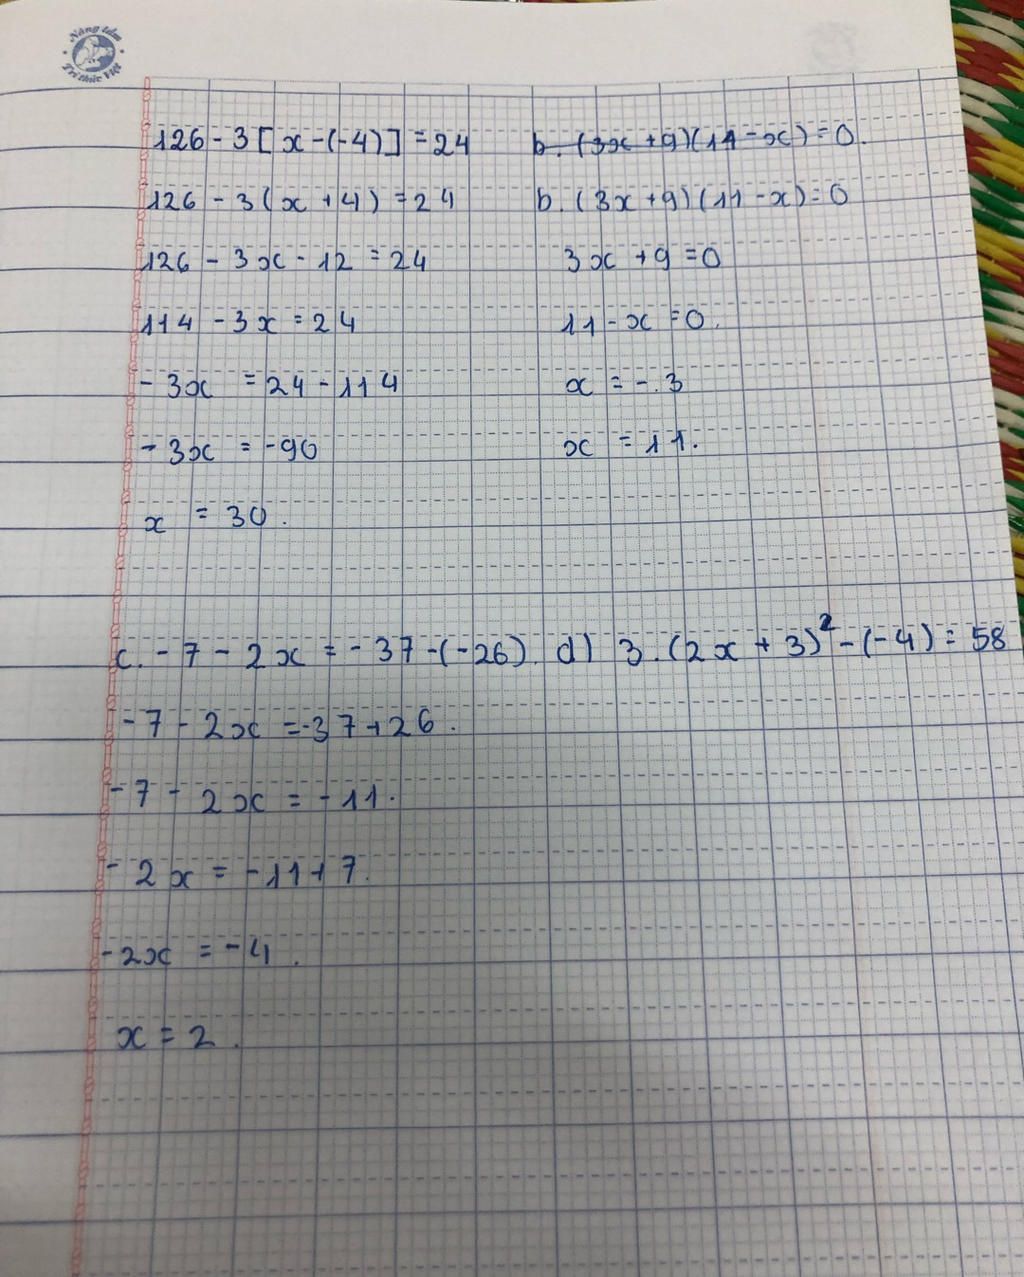 Nâng tầm
Trí thức Việt
126 - 3[x-(-4)] = 24
126 - 3(x + 4) = 24
126 - 3x - 12 = 24
114 - 3x = 24
- 3x = 24 - 114
- 3x = -90
x = 30.
b. (3x + 9)(11 - x) = 0.
b. (3x + 9)(11 - x) = 0
3x + 9 = 0
11 - x = 0.
x = -.3
x = 11.
c. -7 - 2x = -37 -(-26).
-7 - 2x = -37 + 26.
-7 - 2x = -11.
- 2x = -11 + 7.
-2x = -4.
x = 2.
d) 3.(2x + 3)² - (-4) = 58